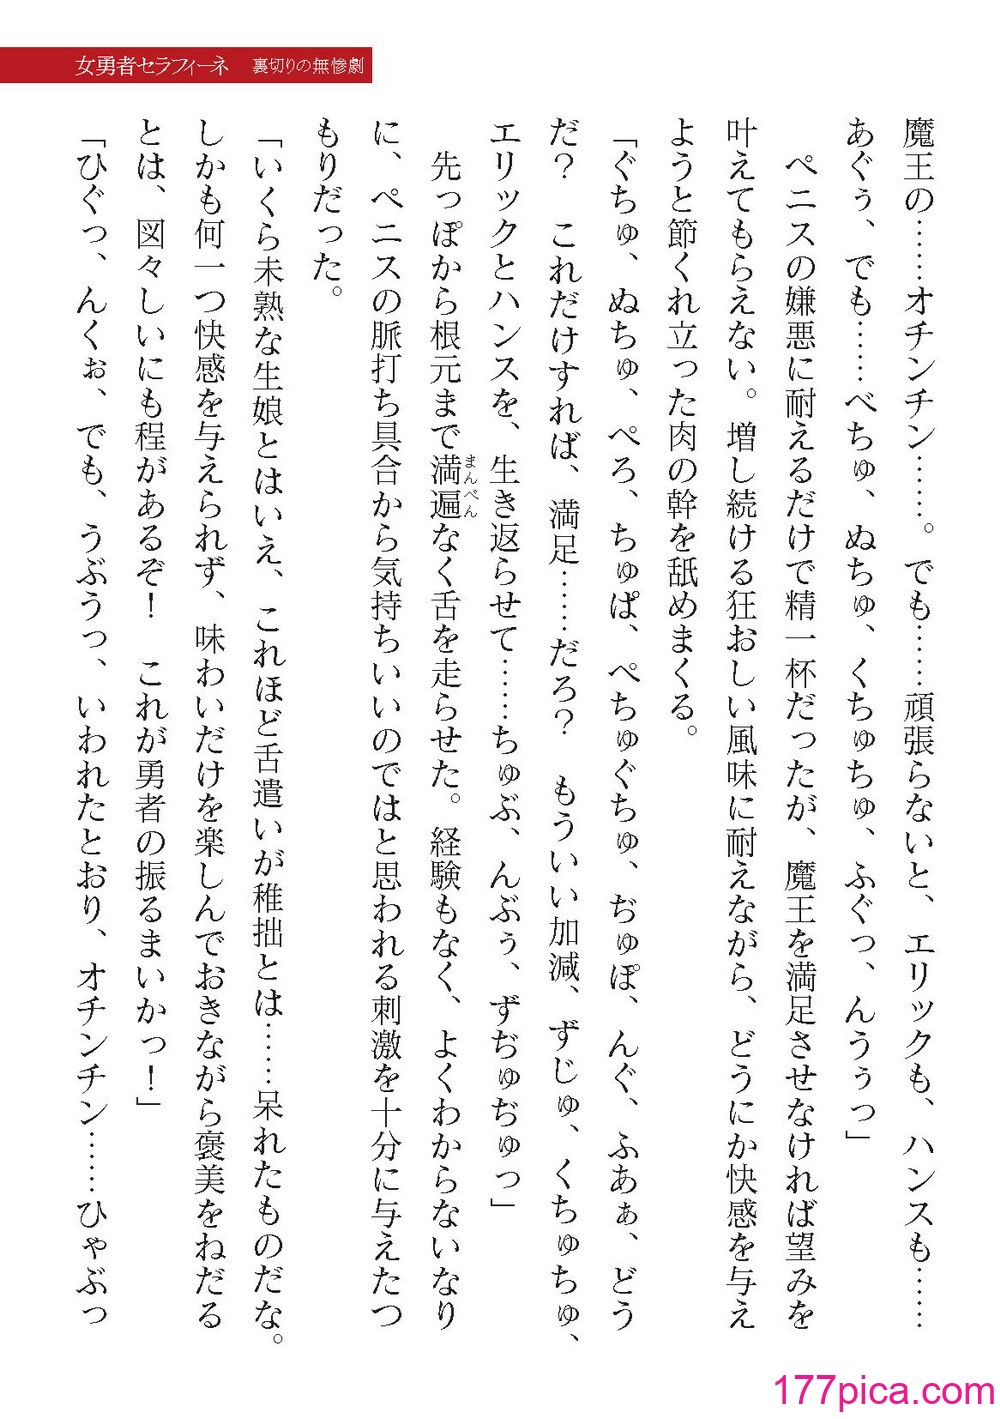 女勇者セラフィーネ 裏切りの無惨劇
魔王の……オチンチン……。でも……頑張らないと、エリックも、ハンスも……
あぐぅ、でも……べちゅ、ぬちゅ、くちゅちゅ、ふぐっ、んうぅっ」
　ペニスの嫌悪に耐えるだけで精一杯だったが、魔王を満足させなければ望みを
叶えてもらえない。増し続ける狂おしい風味に耐えながら、どうにか快感を与え
ようと節くれ立った肉の幹を舐めまくる。
「ぐちゅ、ぬちゅ、ぺろ、ちゅぱ、ぺちゅぐちゅ、ぢゅぽ、んぐ、ふあぁ、どう
だ？　これだけすれば、満足……だろ？　もういい加減、ずじゅ、くちゅちゅ、
エリックとハンスを、生き返らせて……ちゅぶ、んぶぅ、ずぢゅぢゅっ」
　先っぽから根元まで満遍なく舌を走らせた。経験もなく、よくわからないなり
まんべん
に、ペニスの脈打ち具合から気持ちいいのではと思われる刺激を十分に与えたつ
もりだった。
「いくら未熟な生娘とはいえ、これほど舌遣いが稚拙とは……呆れたものだな。
しかも何一つ快感を与えられず、味わいだけを楽しんでおきながら褒美をねだる
とは、図々しいにも程があるぞ！　これが勇者の振るまいかっ！」
「ひぐっ、んくぉ、でも、うぶうっ、いわれたとおり、オチンチン……ひゃぶっ
177pica.com